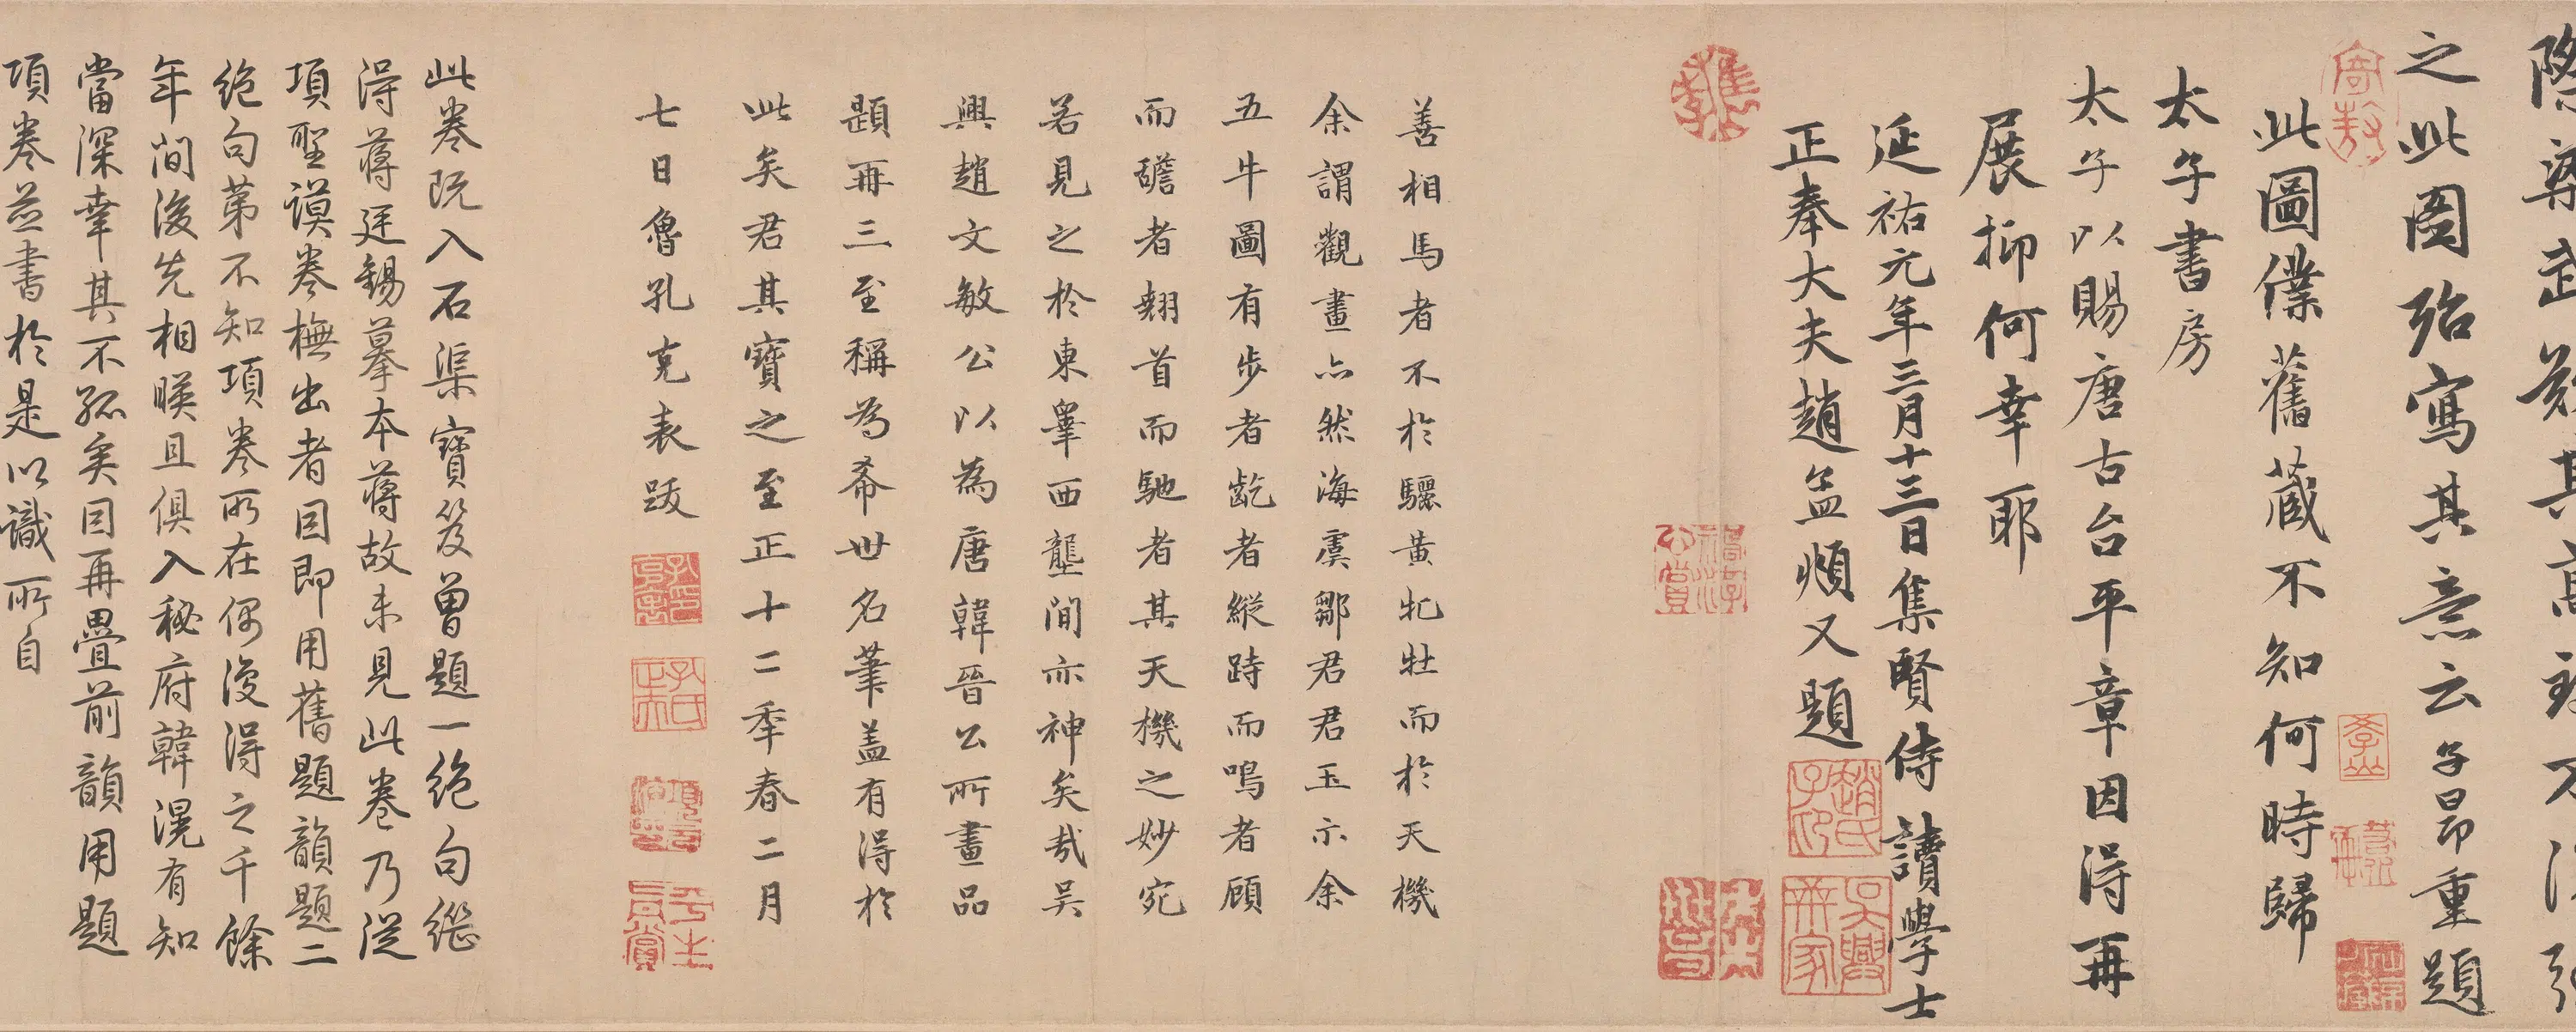 之此圖殆寫其意云子昂重題
此圖僕舊藏不知何時歸
太子書房
太子以賜唐古台平章因得再
展抑何幸耶
延祐元年三月十三日集賢侍讀學士
正奉大夫趙孟頫又題
善相馬者不於驪黃牝牡而於天機
余謂觀畫亦然海虞鄒君君玉示余
五牛圖有步者齕者縱跱而鳴者顧
而䑛者翹首而馳者其天機之妙宛
若見之於東睪西壟間亦神矣哉吴
興趙文敏公以為唐韓晉公所畫品
題再三至稱為希世名筆盖有得於
此矣君其寶之至正十二季春二月
七日魯孔克表跋
此卷既入石渠寶笈曾題一絶句繼
得蔣廷錫摹本蔣故未見此卷乃從
項聖謨卷橅出者因即用舊題韻題二
絶句第不知項卷所在偶復得之千餘
年間後先相暎且俱入秘府韓滉有知
當深幸其不孤矣因再疊前韻用題
項卷並書於是以識所自